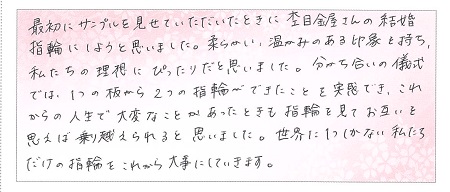 最初にサンプルを見せていただいたときに杢目金屋さんの結婚
指輪にしようと思いました。柔らかい、温かみのある印象を持ち、
私たちの理想にぴったりだと思いました。分かち合いの儀式
では、1つの板から2つの指輪ができたことを実感でき、これ
からの人生で大変なことがあったときも指輪を見てお互いを
思えば乗り越えられると思いました。世界に1つしかない私たち
だけの指輪をこれから大事にしていきます。